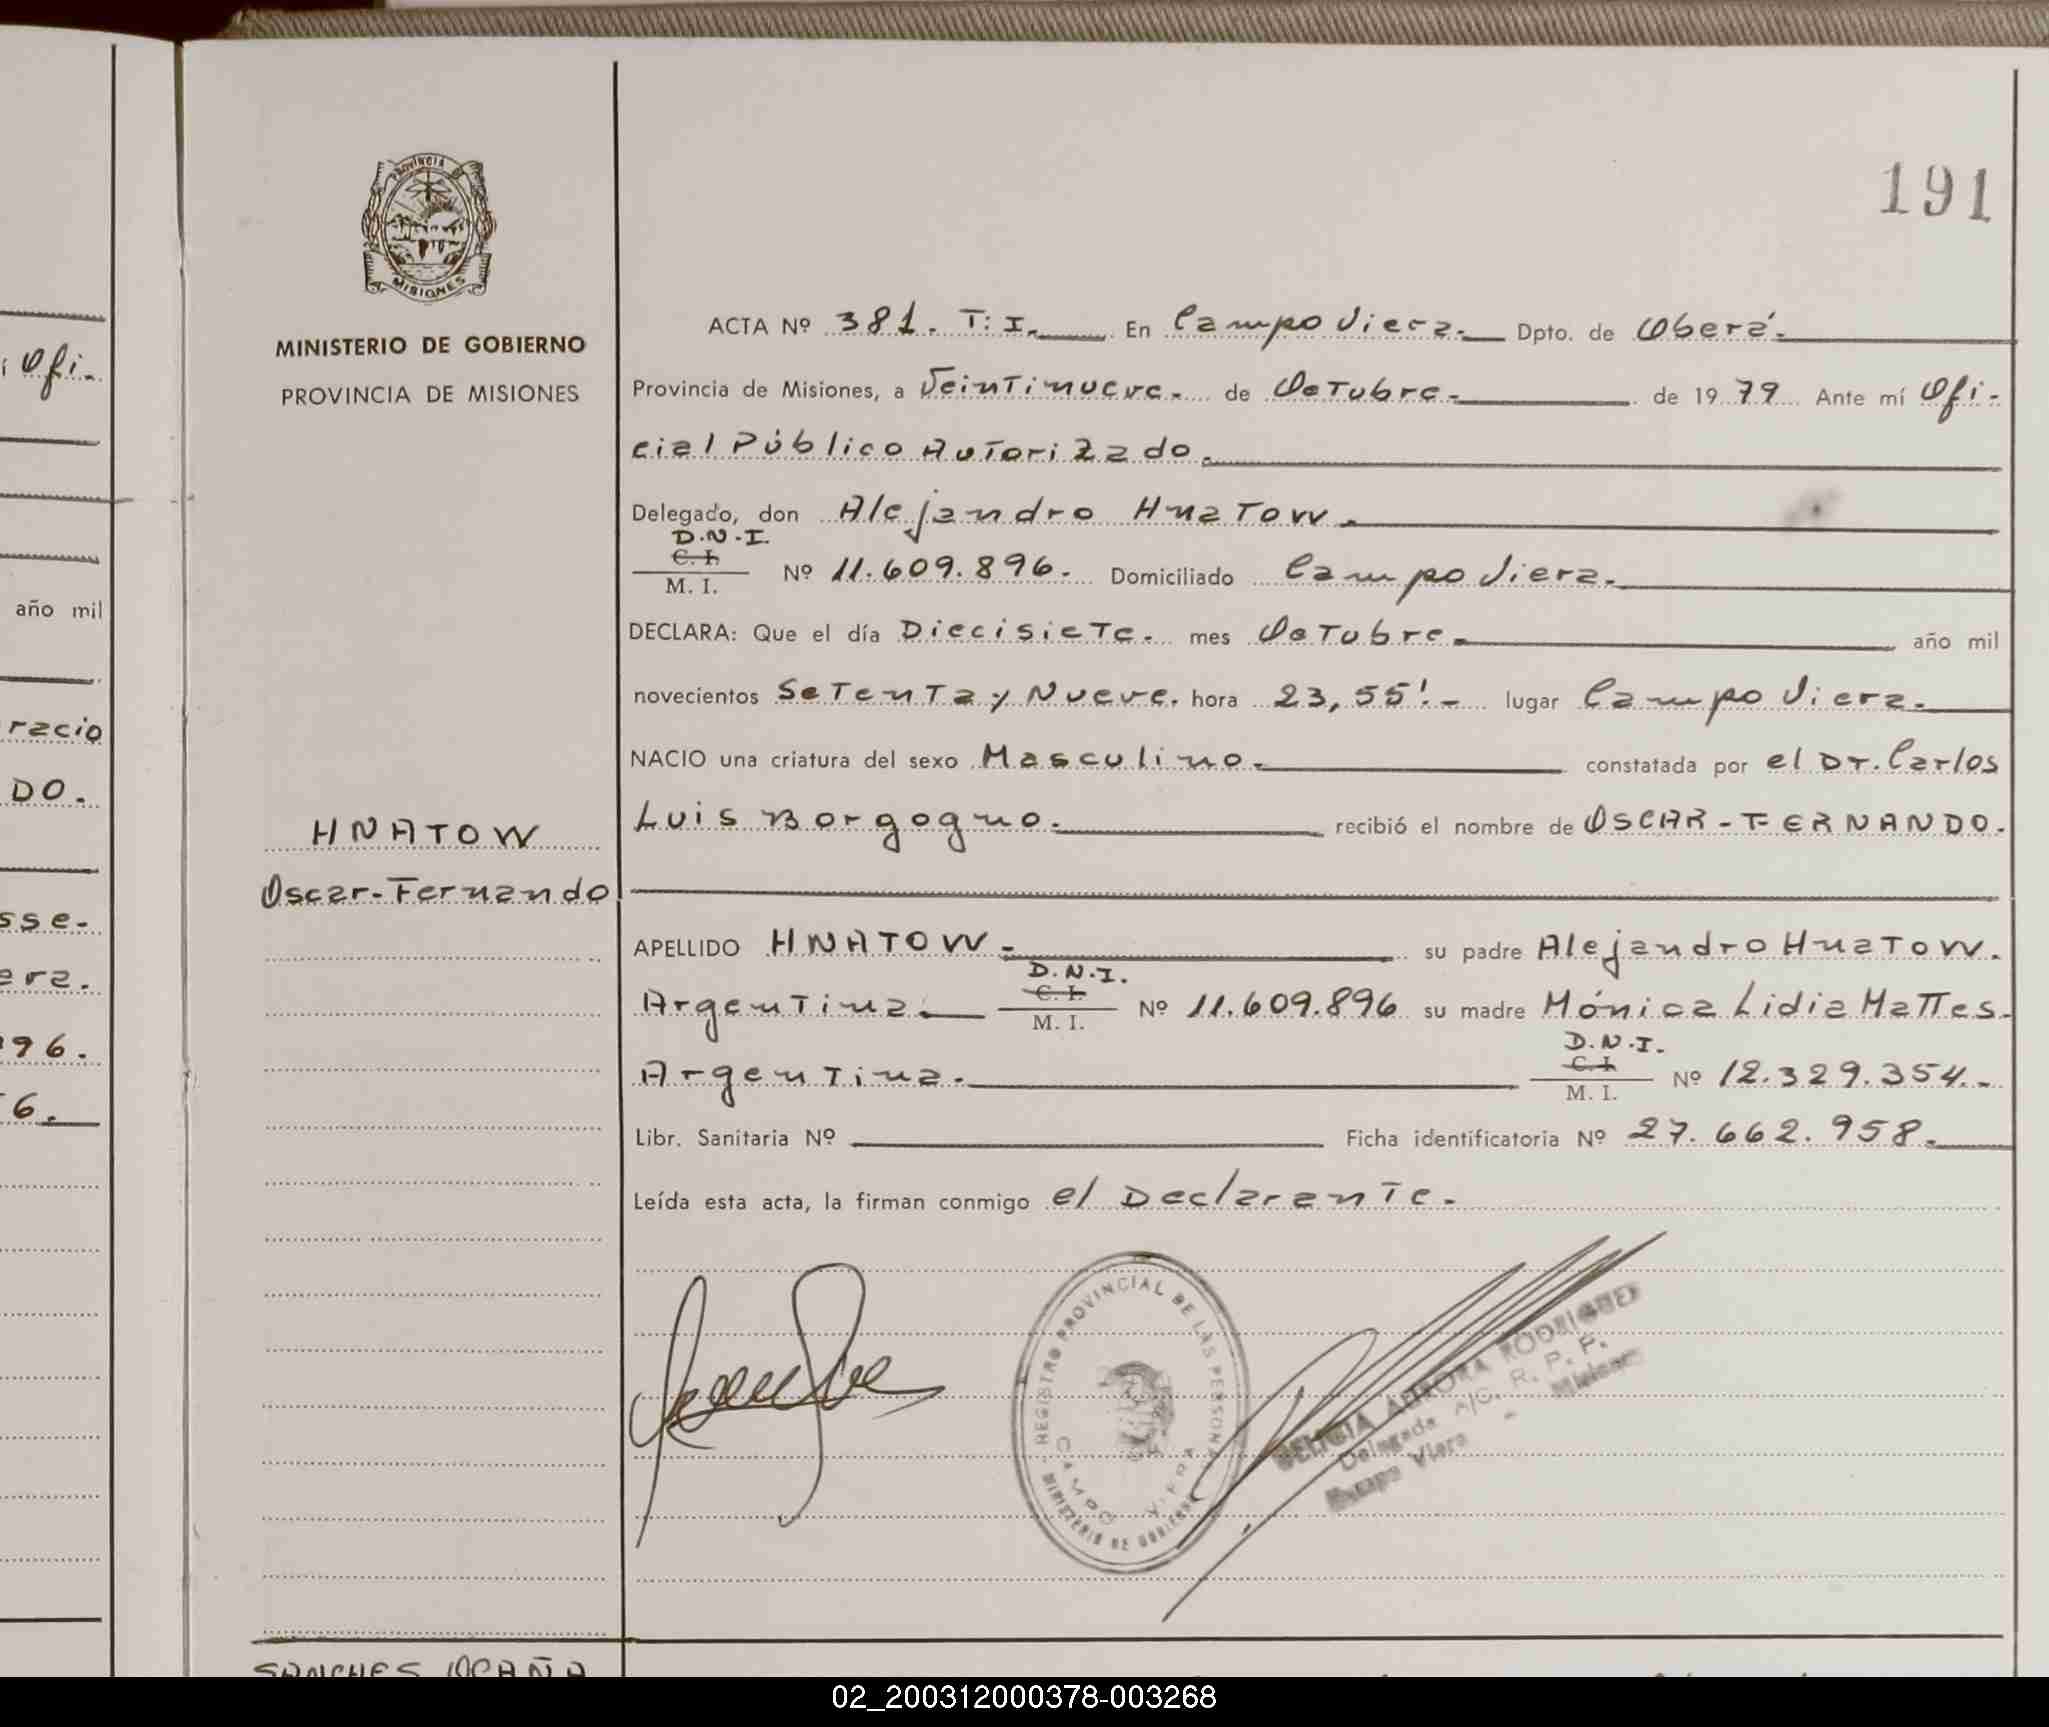 191
PROVINCIA DE
MISIONES
MINISTERIO DE GOBIERNO
PROVINCIA DE MISIONES
HNATOW
Oscar-Fernando
ACTA Nº 381. T: I. En Campo Viera. Dpto. de Oberá.
Provincia de Misiones, a Veintinueve. de Octubre. de 1979 Ante mí Ofi-
cial Público Autorizado.
Delegado, don Alejandro Hnatow.
D.N.I.
C. I.
M. I. Nº 11.609.896. Domiciliado Campo Viera.
DECLARA: Que el día Diecisiete. mes Octubre. año mil
novecientos Setenta y Nueve. hora 23,55'.- lugar Campo Viera.
NACIO una criatura del sexo Masculino. constatada por el Dr. Carlos
Luis Borgogno. recibió el nombre de OSCAR-FERNANDO.
APELLIDO HNATOW.- su padre Alejandro Hnatow.
D.N.I.
C. I.
Argentina. M. I. Nº 11.609.896 su madre Mónica Lidia Mattes.
D.N.I.
C. I.
Argentina. M. I. Nº 12.329.354.-
Libr. Sanitaria Nº Ficha identificatoria Nº 27.662.958.
Leída esta acta, la firman conmigo el Declarante.
REGISTRO PROVINCIAL DE LAS PERSONAS
CAMPO VIERA
MINISTERIO DE GOBIERNO
AURORA RODRIGUEZ
Delegada A/C. R. P. P.
Campo Viera - Misiones
í Ofi-
año mil
racio
DO.
sse-
era.
96.
6.
SANCHES OCAÑA
02_200312000378-003268